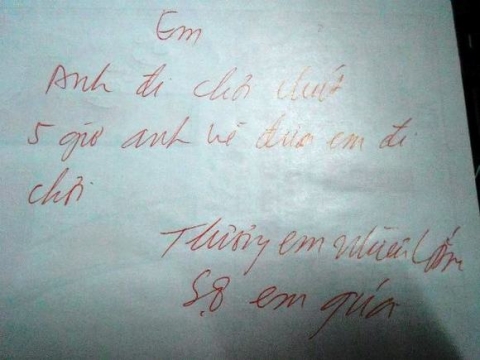 Em
Anh đi chơi chút
5 giờ anh về đưa em đi
chơi
Thương em nhiều lắm
Sợ em quá